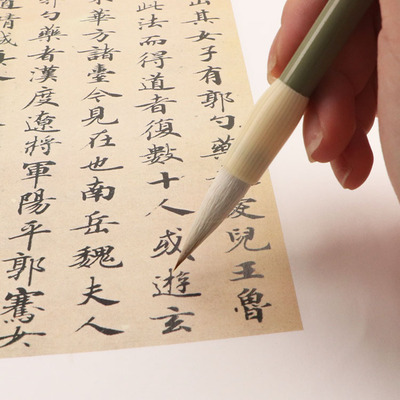 出其女子有郭勺藥愛兒王魯
此法而得道者復數十人或遊玄
東華方諸臺今見在也南岳魏夫人
勺藥者漢度遼將軍陽平郭騫女
道精誠